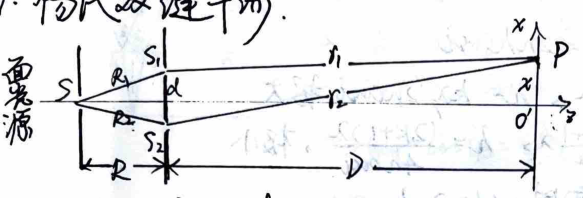 杨氏双缝干涉.
面光源
S
R₁
R₂
S₁
S₂
d
r₁
r₂
x
P
x
O'
z
R
D